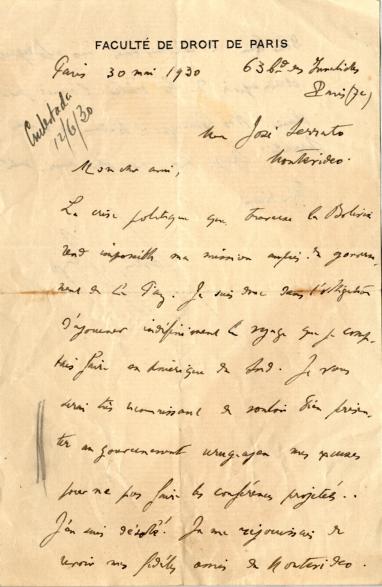 FACULTÉ DE DROIT DE PARIS
Paris 30 mai 1930 63 bd des Invalides
Paris (7e)
Contestada
12/6/30
José Serrato
Montevideo.
Mon cher ami,
La crise politique que traverse la Bolivie
rend impossible ma mission auprès du gouverne-
ment de La Paz. Je suis donc dans l'obligation
d'ajourner indéfiniment le voyage que je comp-
tais faire en Amérique du Sud. Je vous
serai très reconnaissant de vouloir bien présen-
ter au gouvernement uruguayen mes excuses
pour ne pas faire les conférences projetées..
J'en suis désolé! Je me réjouissais de
revoir mes fidèles amis de Montevideo.